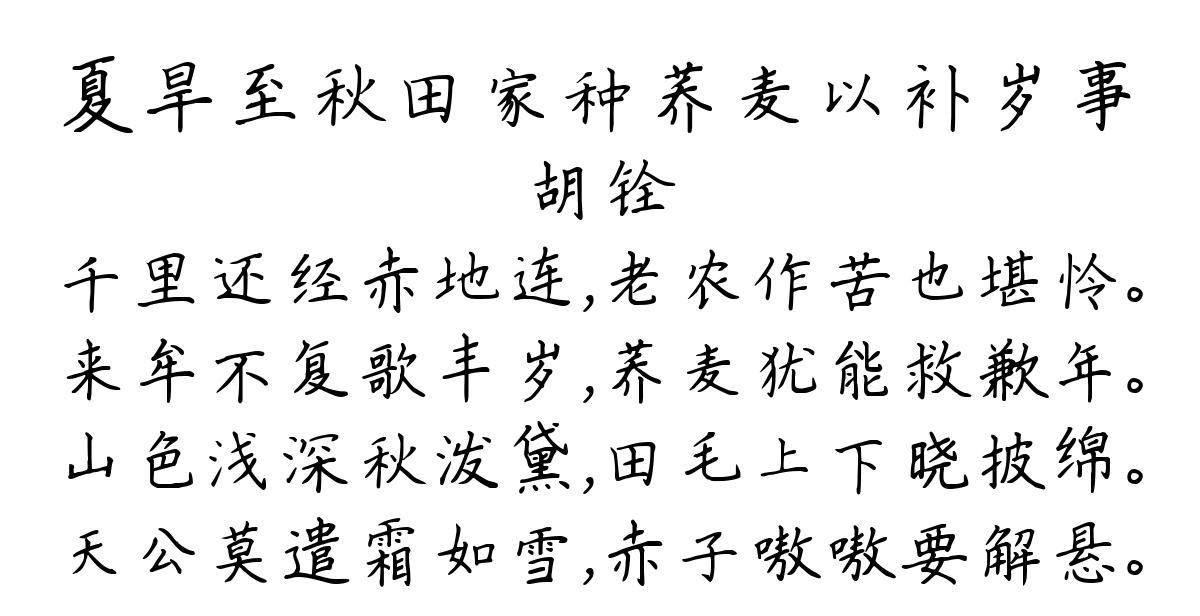 夏旱至秋田家种荞麦以补岁事
胡铨
千里还经赤地连,老农作苦也堪怜。
来牟不复歌丰岁,荞麦犹能救歉年。
山色浅深秋泼黛,田毛上下晓披绵。
天公莫遣霜如雪,赤子嗷嗷要解悬。